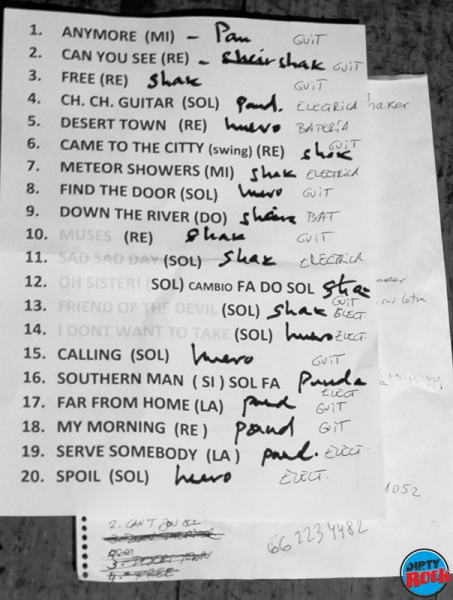 1. ANYMORE (MI) - Pau GUIT
2. CAN YOU SEE (RE) - shak GUIT
3. FREE (RE) shak GUIT
4. CH. CH. GUITAR (SOL) paud. ELECTRICA haker
5. DESERT TOWN (RE) huevo BATERÍA
6. CAME TO THE CITTY (swing) (RE) shak GUIT
7. METEOR SHOWERS (MI) shak ELECTRICA
8. FIND THE DOOR (SOL) huevo GUIT
9. DOWN THE RIVER (DO) BAT
10. MUSES (RE) shak GUIT
11. SAD SAD DAY (SOL) shak ELECTRICA
12. OH SISTER! (SOL) CAMBIO FA DO SOL shak GUIT
13. FRIEND OF THE DEVIL (SOL) shak ELECT
14. I DONT WANT TO TAKE (SOL) huevo ELECT.
15. CALLING (SOL) huevo GUIT
16. SOUTHERN MAN (SI) SOL FA ELECT
17. FAR FROM HOME (LA) paud GUIT
18. MY MORNING (RE) paud GUIT
19. SERVE SOMEBODY (LA) paud. ELECT.
20. SPOIL (SOL) huevo ELECT.
1052
2. CAN'T YOU SEE
3. DESERT TOWN
4. FREE
662234482
DIRTY ROCK